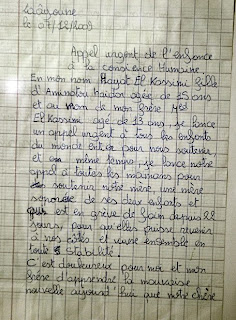 Laâyoune
le 07/12/2009
Appel urgent de l'enfance
à la conscience Humaine
En mon nom Hayat El Kassimi fille
d'Aminatou haidar agée de 15 ans
et au Nom de mon frère Med
El Kassimi agé de 13 ans, je lance
un appel urgent à tous les enfants
du monde entier pour nous soutenir
et en même temps, je lance notre
appel à toutes les mamans pour
soutenir notre mère, une mère
de ses deux enfants et
qui est en grève de faim depuis 22
jours, pour qu'elle puisse revenir
à nos côtés et vivre ensemble en
toute stabilité.
C'est douloureux pour moi et mon
frère d'apprendre la mauvaise
nouvelle aujourd'hui que notre chère